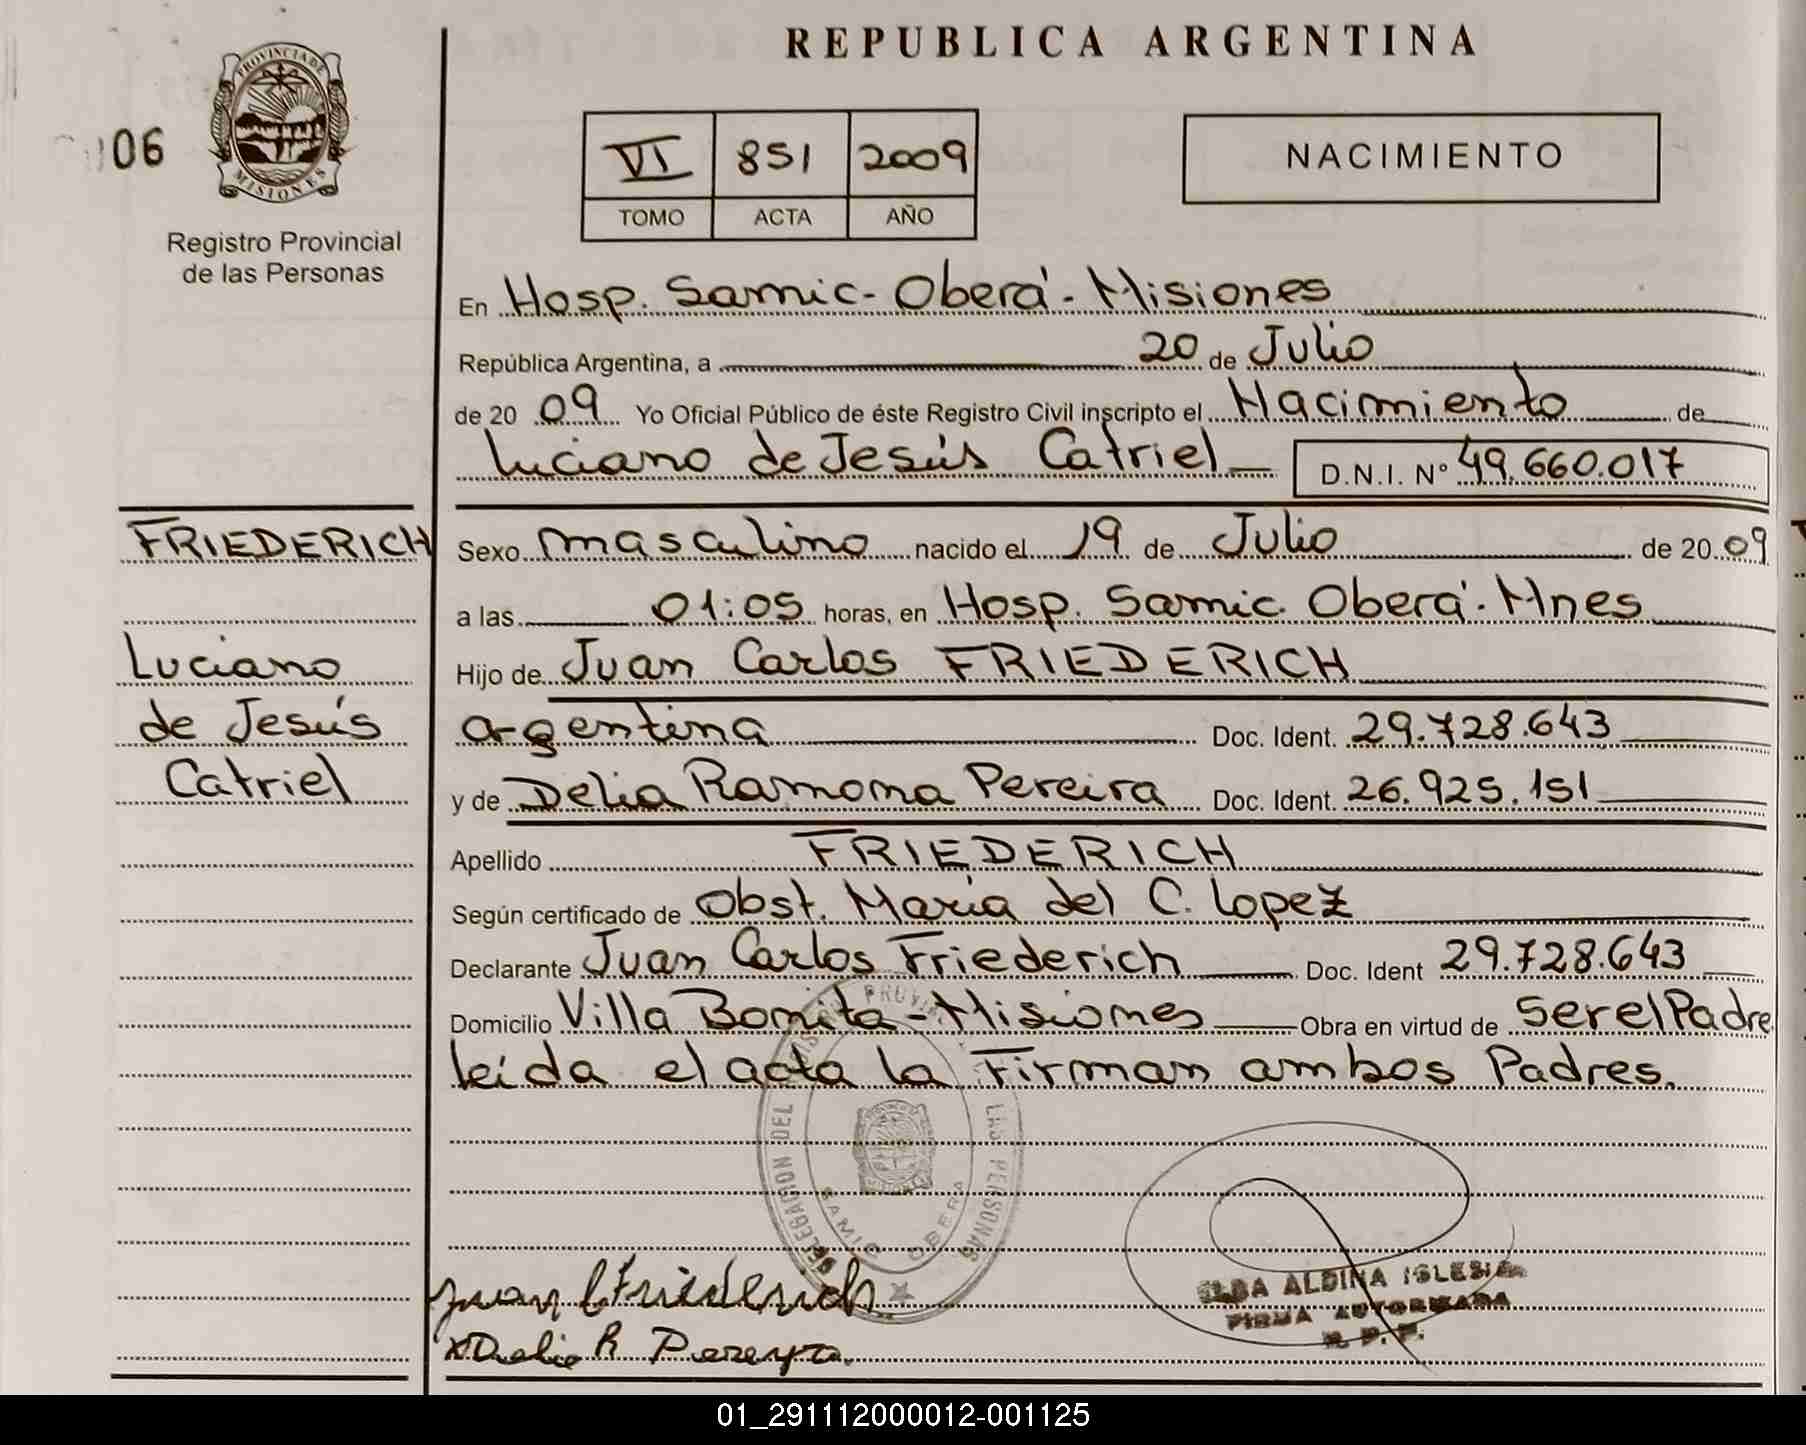 REPUBLICA ARGENTINA
PROVINCIA DE
MISIONES
06
Registro Provincial
de las Personas
VI 851 2009
TOMO ACTA AÑO
NACIMIENTO
En Hosp. Samic - Oberá - Misiones
República Argentina, a 20 de Julio
de 20 09 Yo Oficial Público de éste Registro Civil inscripto el Nacimiento de
Luciano de Jesús Catriel D.N.I. Nº 49.660.017
FRIEDERICH
Luciano
de Jesús
Catriel
Sexo masculino nacido el 19 de Julio de 20 09
a las 01:05 horas, en Hosp. Samic. Oberá - Mnes
Hijo de Juan Carlos FRIEDERICH
argentina Doc. Ident. 29.728.643
y de Delia Ramona Pereira Doc. Ident. 26.925.151
Apellido FRIEDERICH
Según certificado de Obst. María del C. Lopez
Declarante Juan Carlos Friederich Doc. Ident 29.728.643
Domicilio Villa Bonita - Misiones Obra en virtud de Ser el Padre
leída el acta la Firman ambos Padres.
DELEGACION DEL LAS PERSONAS
SAMIC OBERA
Juan C Friederich
x Delia R Pereyra
ELBA ALDINA IGLESIAS
FIRMA AUTORIZADA
R. P. P.
01_291112000012-001125